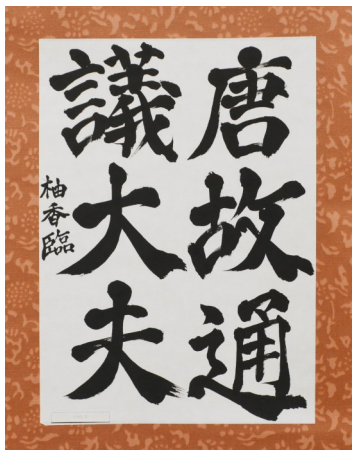 唐故通
議大夫
柚香臨